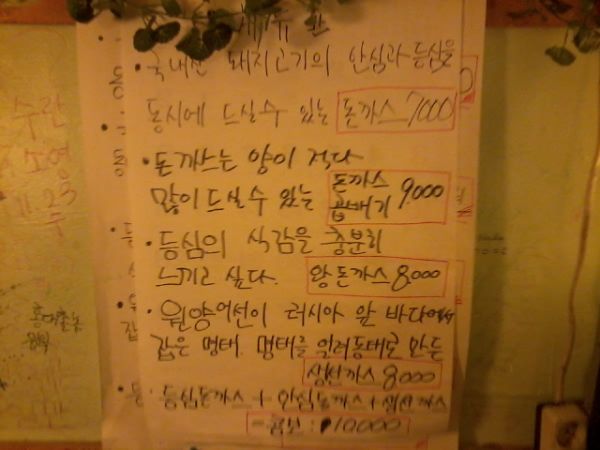 메뉴판
• 국내산 돼지고기의 안심과 등심을
동시에 드실수 있는 돈까스 7000
• 돈까스는 양이 적다
많이 드실수 있는 돈까스 곱배기 9.000
• 등심의 식감을 충분히
느끼고 싶다. 왕돈까스 8.000
• 원양어선이 러시아 앞 바다에서
잡은 명태. 명태를 얼려 동태로 만든
생선까스 8000
• 등심돈까스 + 안심돈까스 + 생선까스
= 콤보 : 10,000
수란
소영